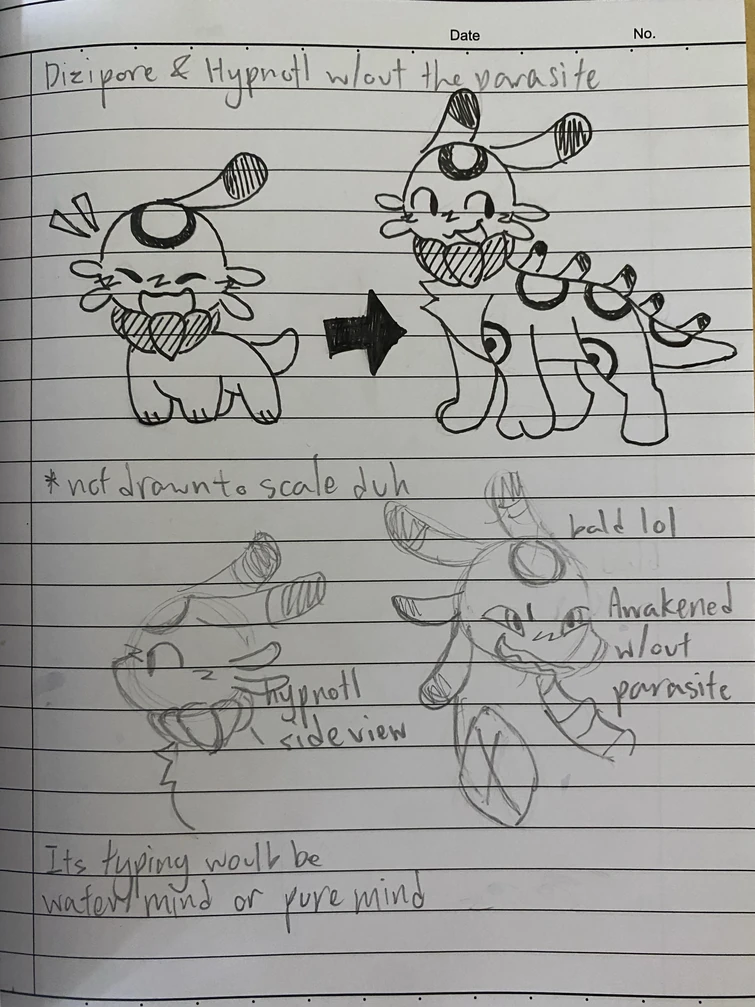 Date No.
Dizipore & Hypnotl w/out the parasite
*not drawn to scale duh
bald lol
Awakened
w/out
parasite
hypnotl
side view
Its typing would be
water/mind or pure mind